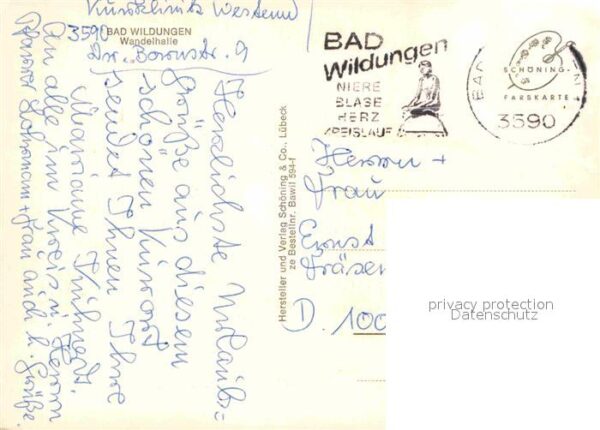 Kurklinik Westend
3590 BAD WILDUNGEN
Wandelhalle
Dr. Bornstr. 9
Herzlichste Urlaub=
grüße aus diesem
schönen Kurort
sendet Ihnen Ihre
Mariane Kühnert.
An alle im Kreis u. Herrn
Pfarrer Lohmann + Frau auch h. Grüße.
Hersteller und Verlag Schöning & Co., Lübeck
ze Bestellnr. Bawil 594-f
BAD
Wildungen
NIERE
BLASE
HERZ
KREISLAUF
BAD
SCHÖNING-
FARBKARTE
3590
Herrn +
Frau
Ernst
D. 100
privacy protection
Datenschutz